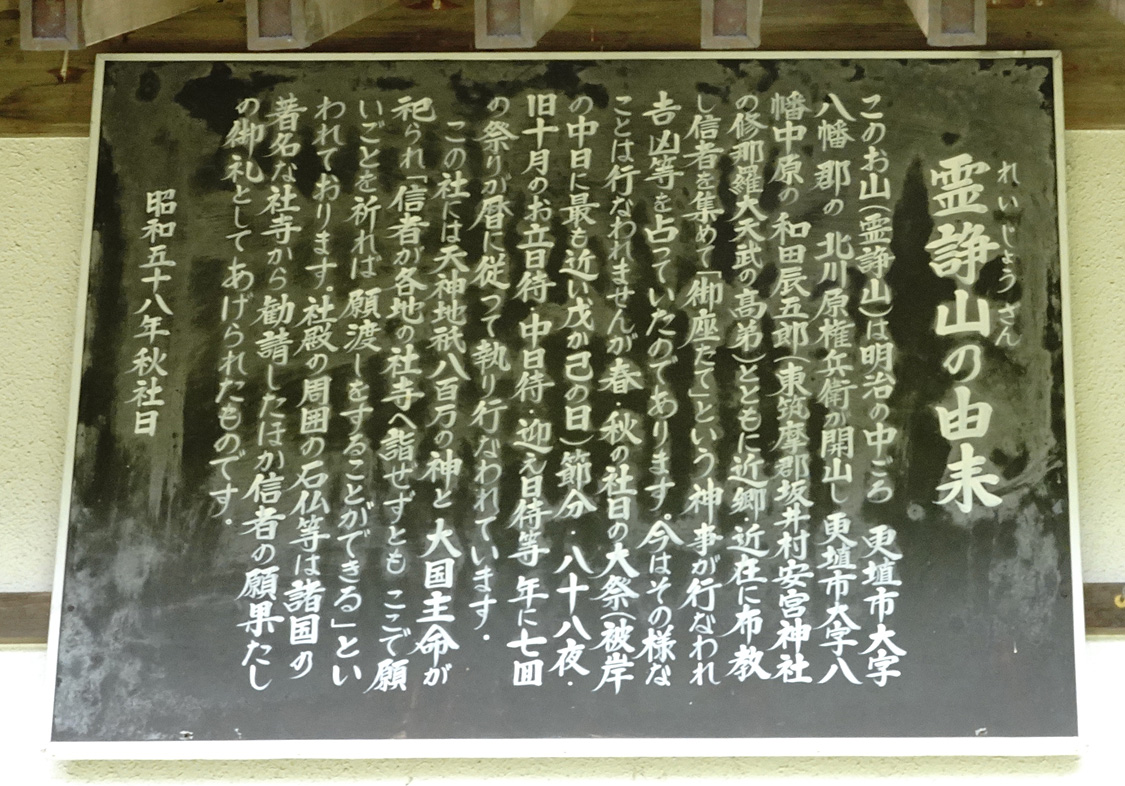 れいじょうさん
霊諍山の由来
このお山(霊諍山)は明治の中ごろ 更埴市大字
八幡 郡の 北川原権兵衛が開山し 更埴市大字八
幡中原の 和田辰五郎(東筑摩郡坂井村安宮神社
の修那羅大天武の高弟)とともに近郷近在に布教
し信者を集めて「御座たて」という神事が行なわれ
吉凶等を占っていたのであります。今はその様な
ことは行なわれませんが春・秋の社日の大祭(彼岸
の中日に最も近い戊か己の日)節分・八十八夜・
旧十月のお立日待・中日待・迎え日待等 年に七回
の祭りが暦に従って執り行なわれています。
この社には天神地祇八百万の神と 大国主命が
祀られ「信者が各地の社寺へ詣せずとも ここで願
いごとを祈れば 願渡しをすることができる」とい
われております。社殿の周囲の石仏等は諸国の
著名な社寺から勧請したほか信者の願果たし
の御礼としてあげられたものです。
昭和五十八年秋社日